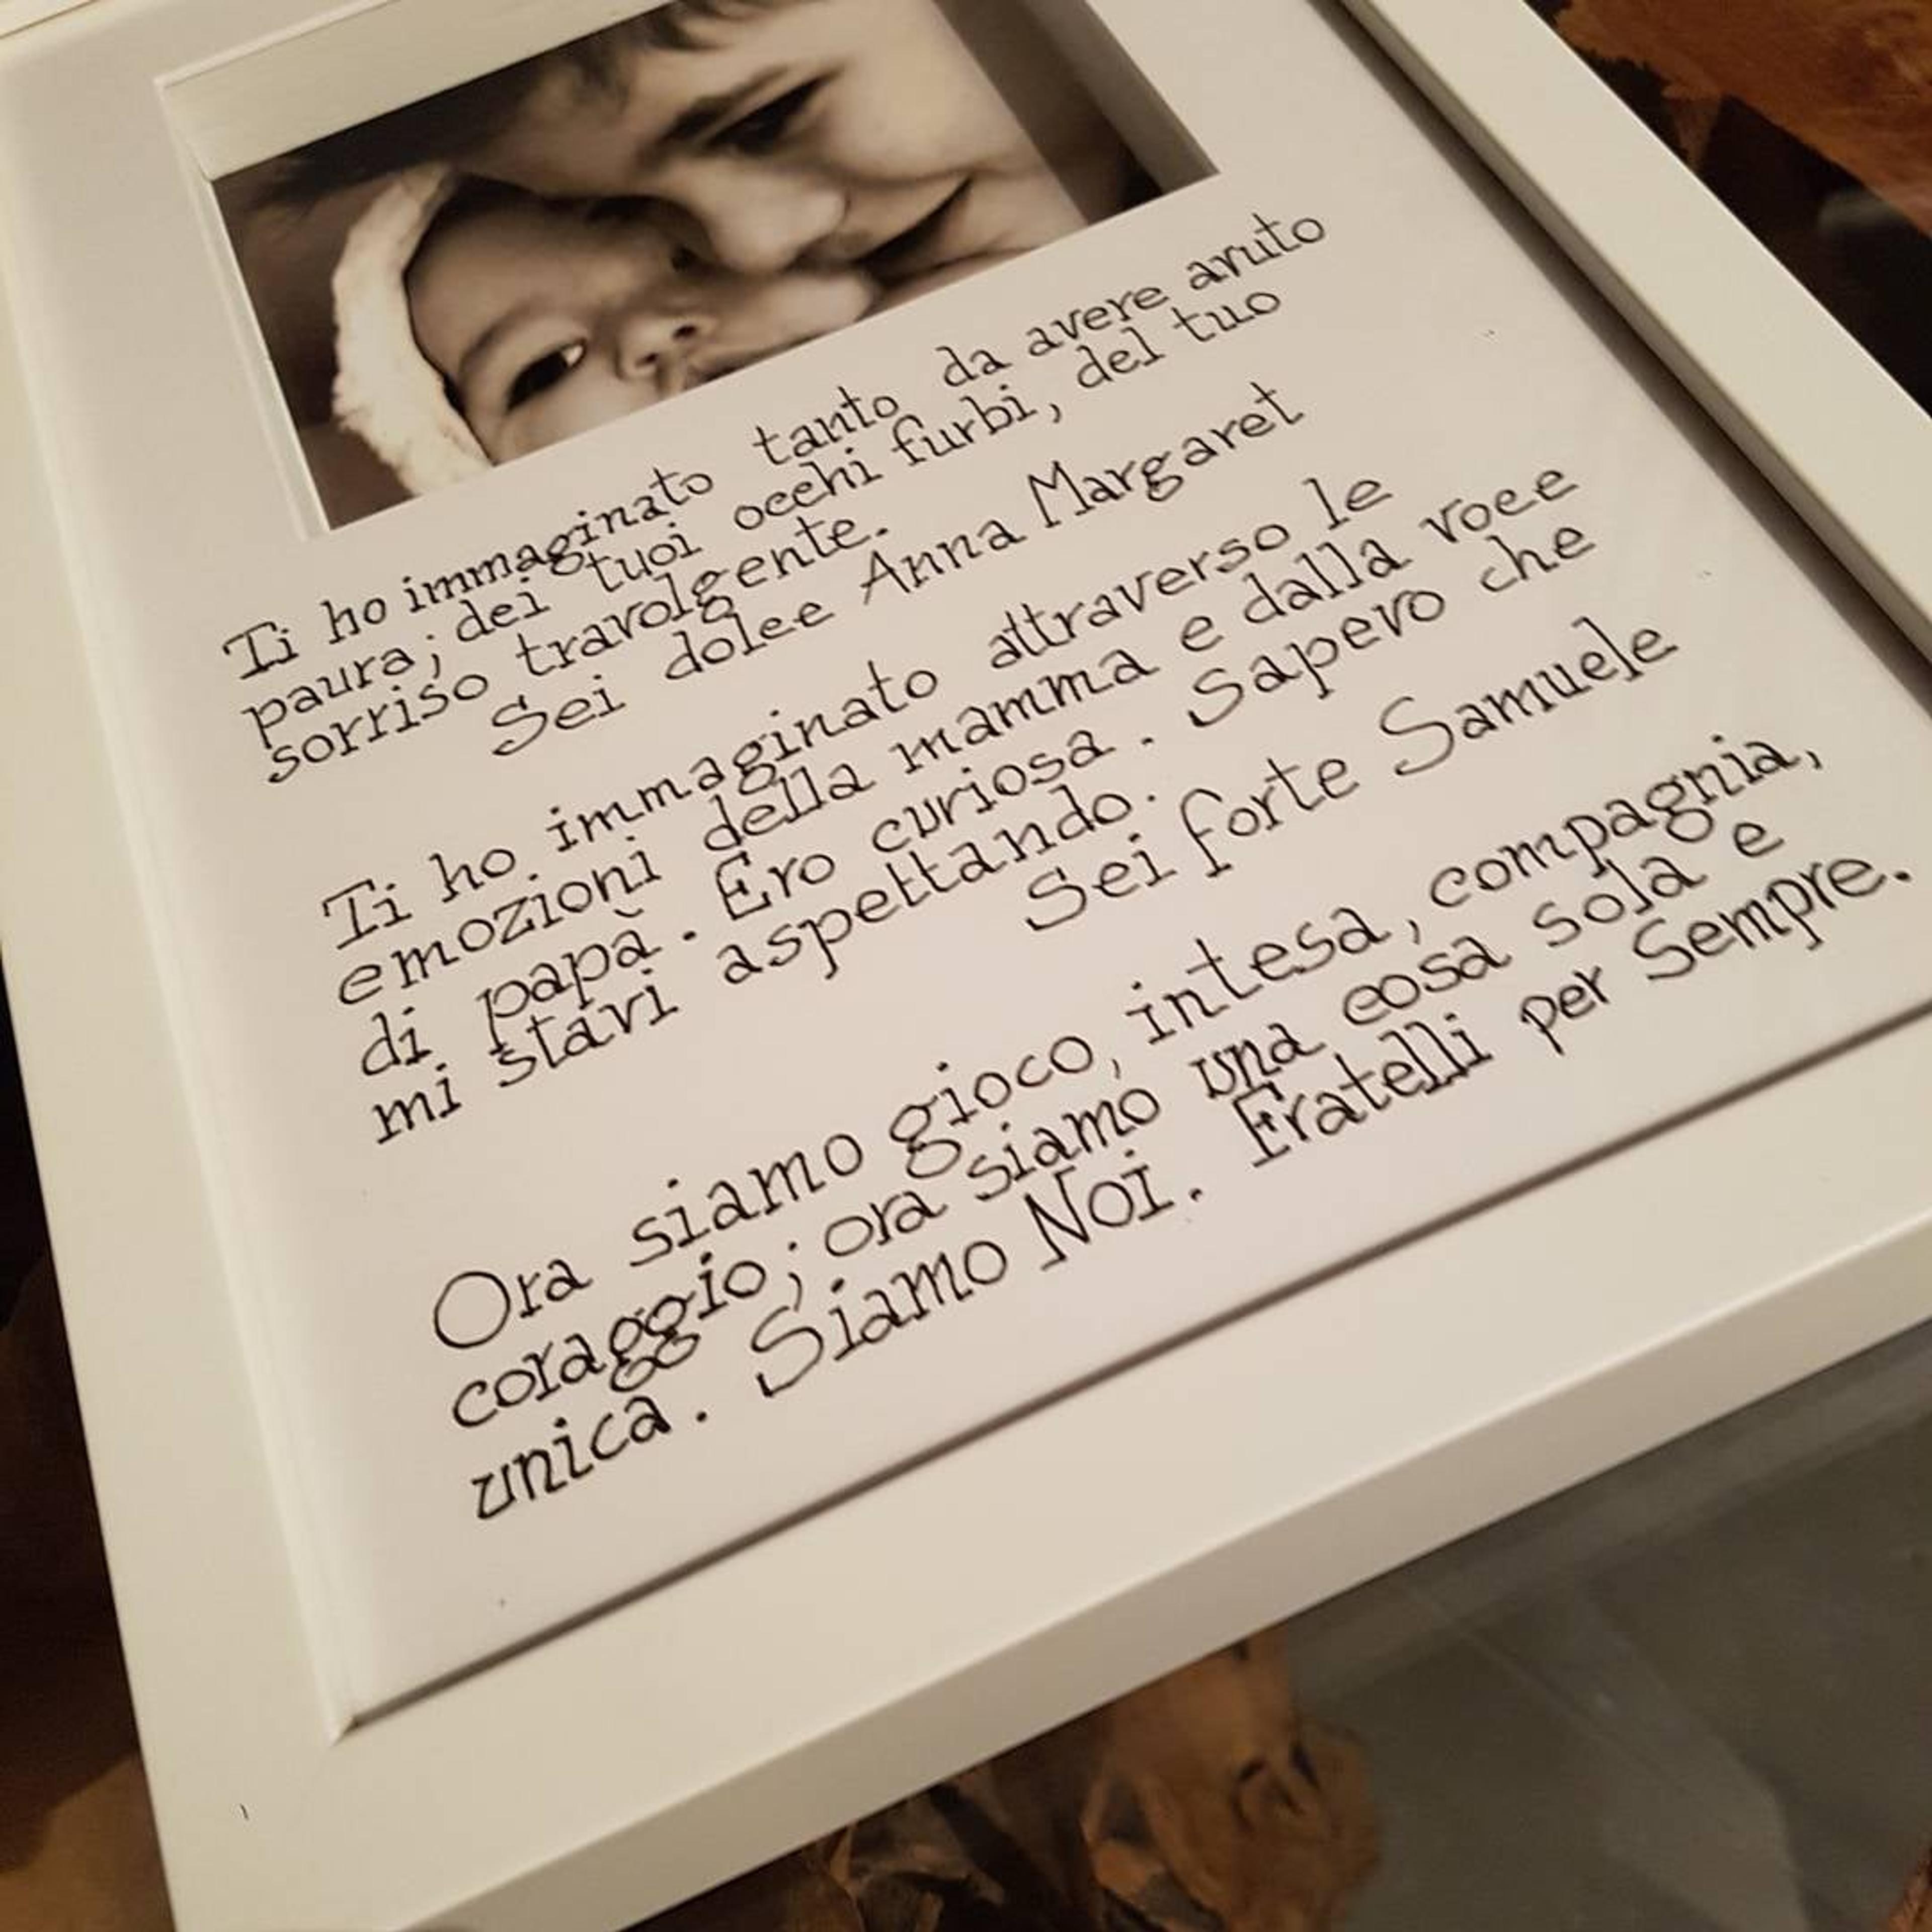 Ti ho immaginato tanto da avere avuto
paura; dei tuoi occhi furbi, del tuo
sorriso travolgente.
Sei dolce Anna Margaret
Ti ho immaginato attraverso le
emozioni della mamma e dalla voce
di papà. Ero curiosa. Sapevo che
mi stavi aspettando.
Sei forte Samuele
Ora siamo gioco, intesa, compagnia,
coraggio; ora siamo una cosa sola e
unica. Siamo Noi. Fratelli per Sempre.